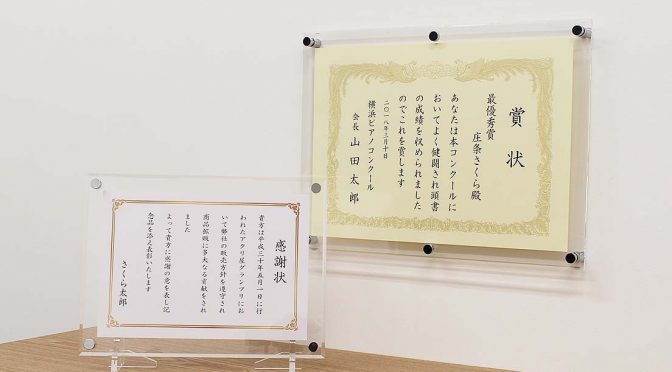 賞状
最優秀賞
庄条さくら殿
あなたは本コンクールに
おいてよく健闘され頭書
の成績を収められました
のでこれを賞します
二〇一八年三月十日
横浜ピアノコンクール
会長 山田太郎
感謝状
貴方は平成三十年五月一日に行
われたアクリ屋グランプリにお
いて弊社の販売方針を遵守され
商品拡販に多大なる貢献をされ
ました
よって貴方に感謝の意を表し記
念品を添え表彰いたします
さくら太郎